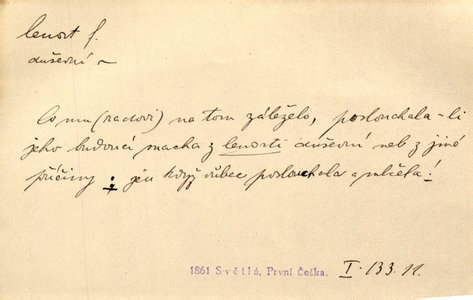 lenost f.
duševní ~
Co mu (Radovi) na tom záleželo, poslouchala-li
jeho budoucí macha z lenosti duševní neb z jiné
příčiny; jen když vůbec poslouchala a mlčela!
1861 Světlá, První Češka. I. 133. 11.